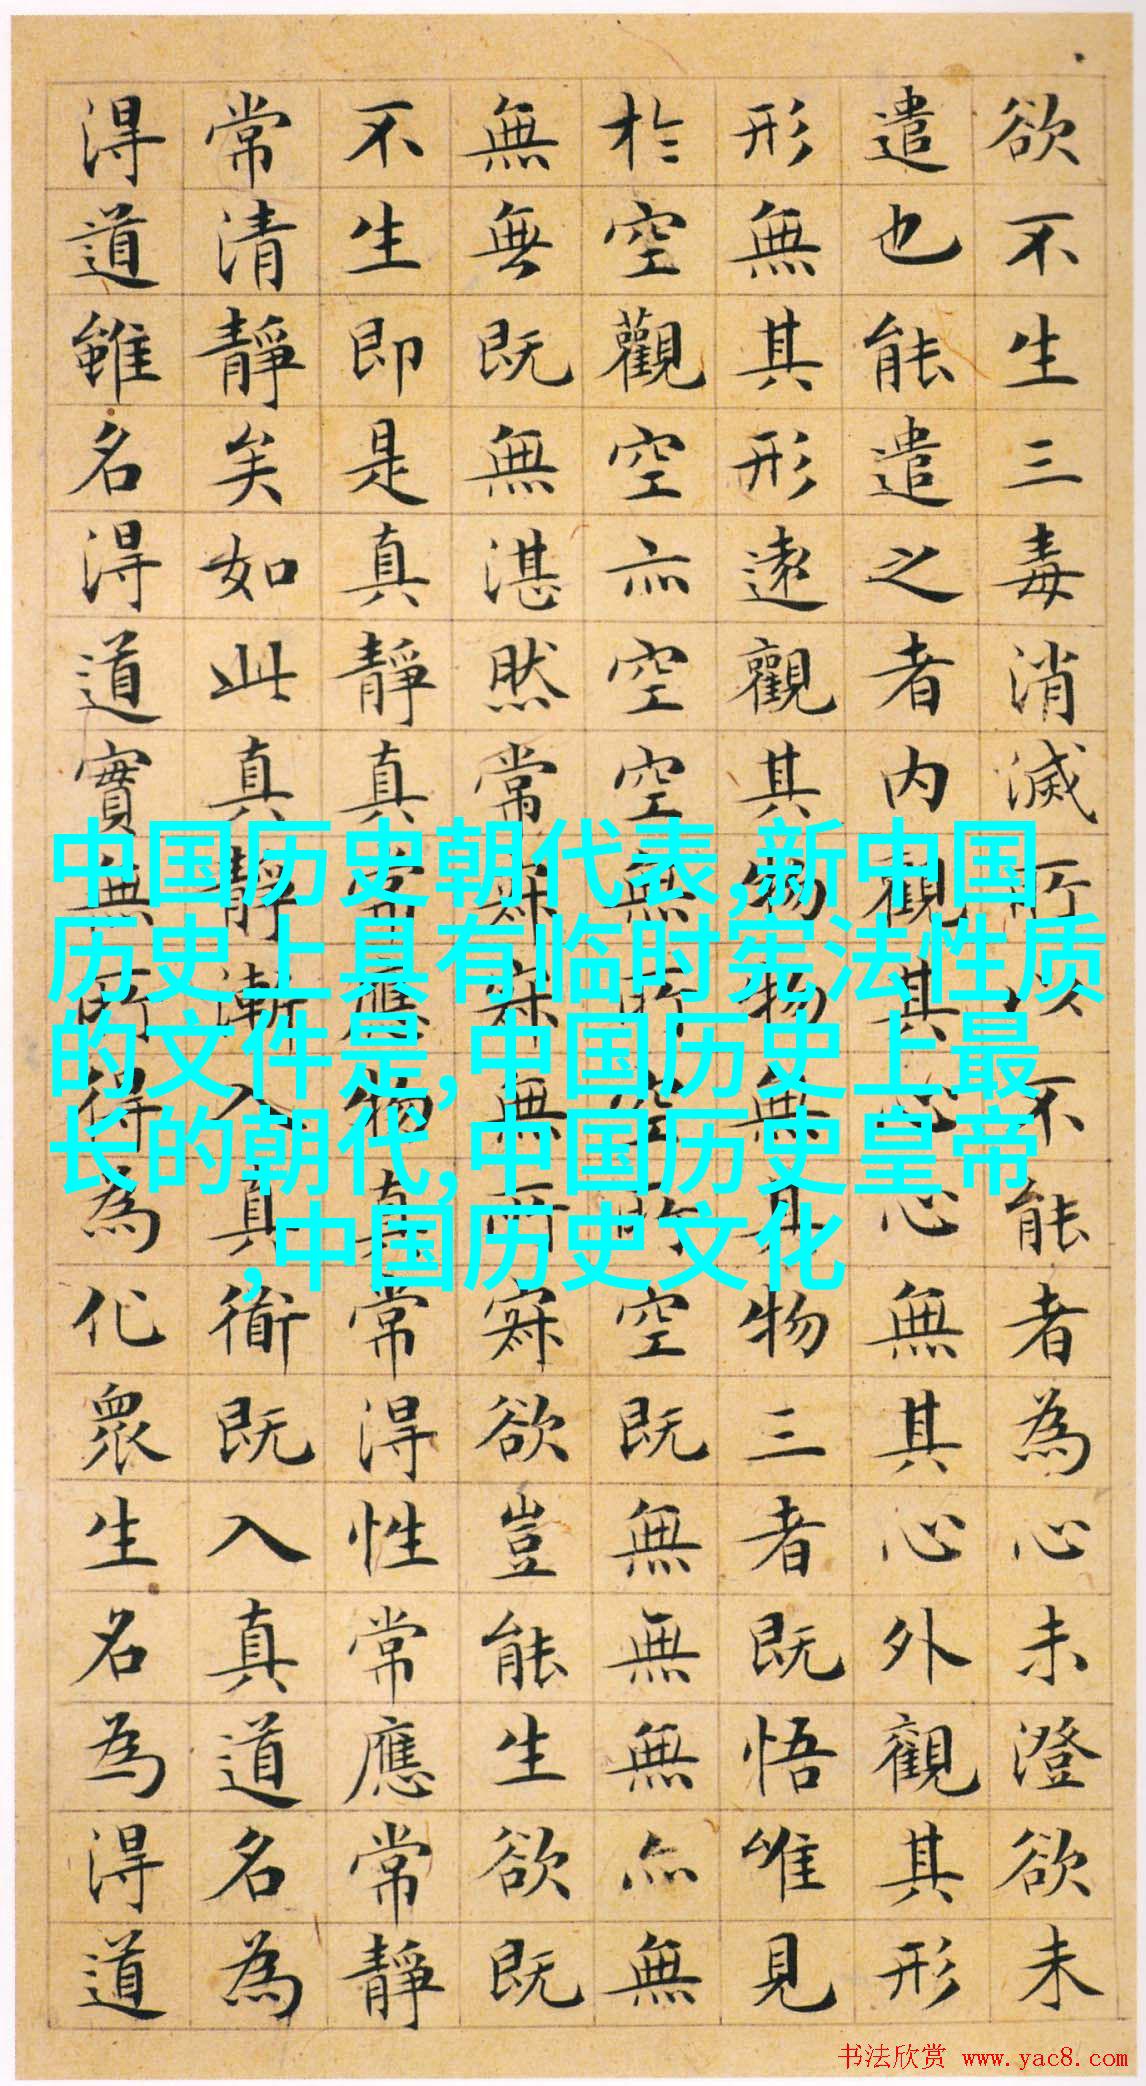 欲不生三毒消滅所以不能者為心未澄欲未
遣也能遣之者内觀其心心無其心外觀其形
形無其形遠觀其物物無其物三者既悟唯見
於空觀空亦空空無所空所空既無無無亦無
無無既無湛然常寂寂無所寂欲豈能生欲既
不生即是真靜真常應物真常得性常應常靜
常清靜矣如此真靜漸入真衜既入真道名為
得道雖名得道實無所得為化眾生名為得道
中国历史朝代表,新中国
历史上具有临时宪法性质
的文件是,中国历史上最
长的朝代,中国历史皇帝
,中国历史文化
书法欣赏 www.yac8.com